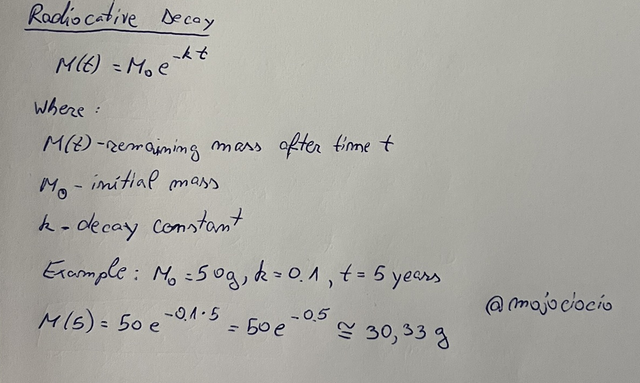 Radiocative Decay
M(t) = M₀ e^-kt
Where:
M(t) - remaining mass after time t
M₀ - initial mass
k - decay constant
Example: M₀ = 50g, k = 0.1, t = 5 years
M(5) = 50 e^-0.1·5 = 50 e^-0.5 ≅ 30,33 g
@mojociocio